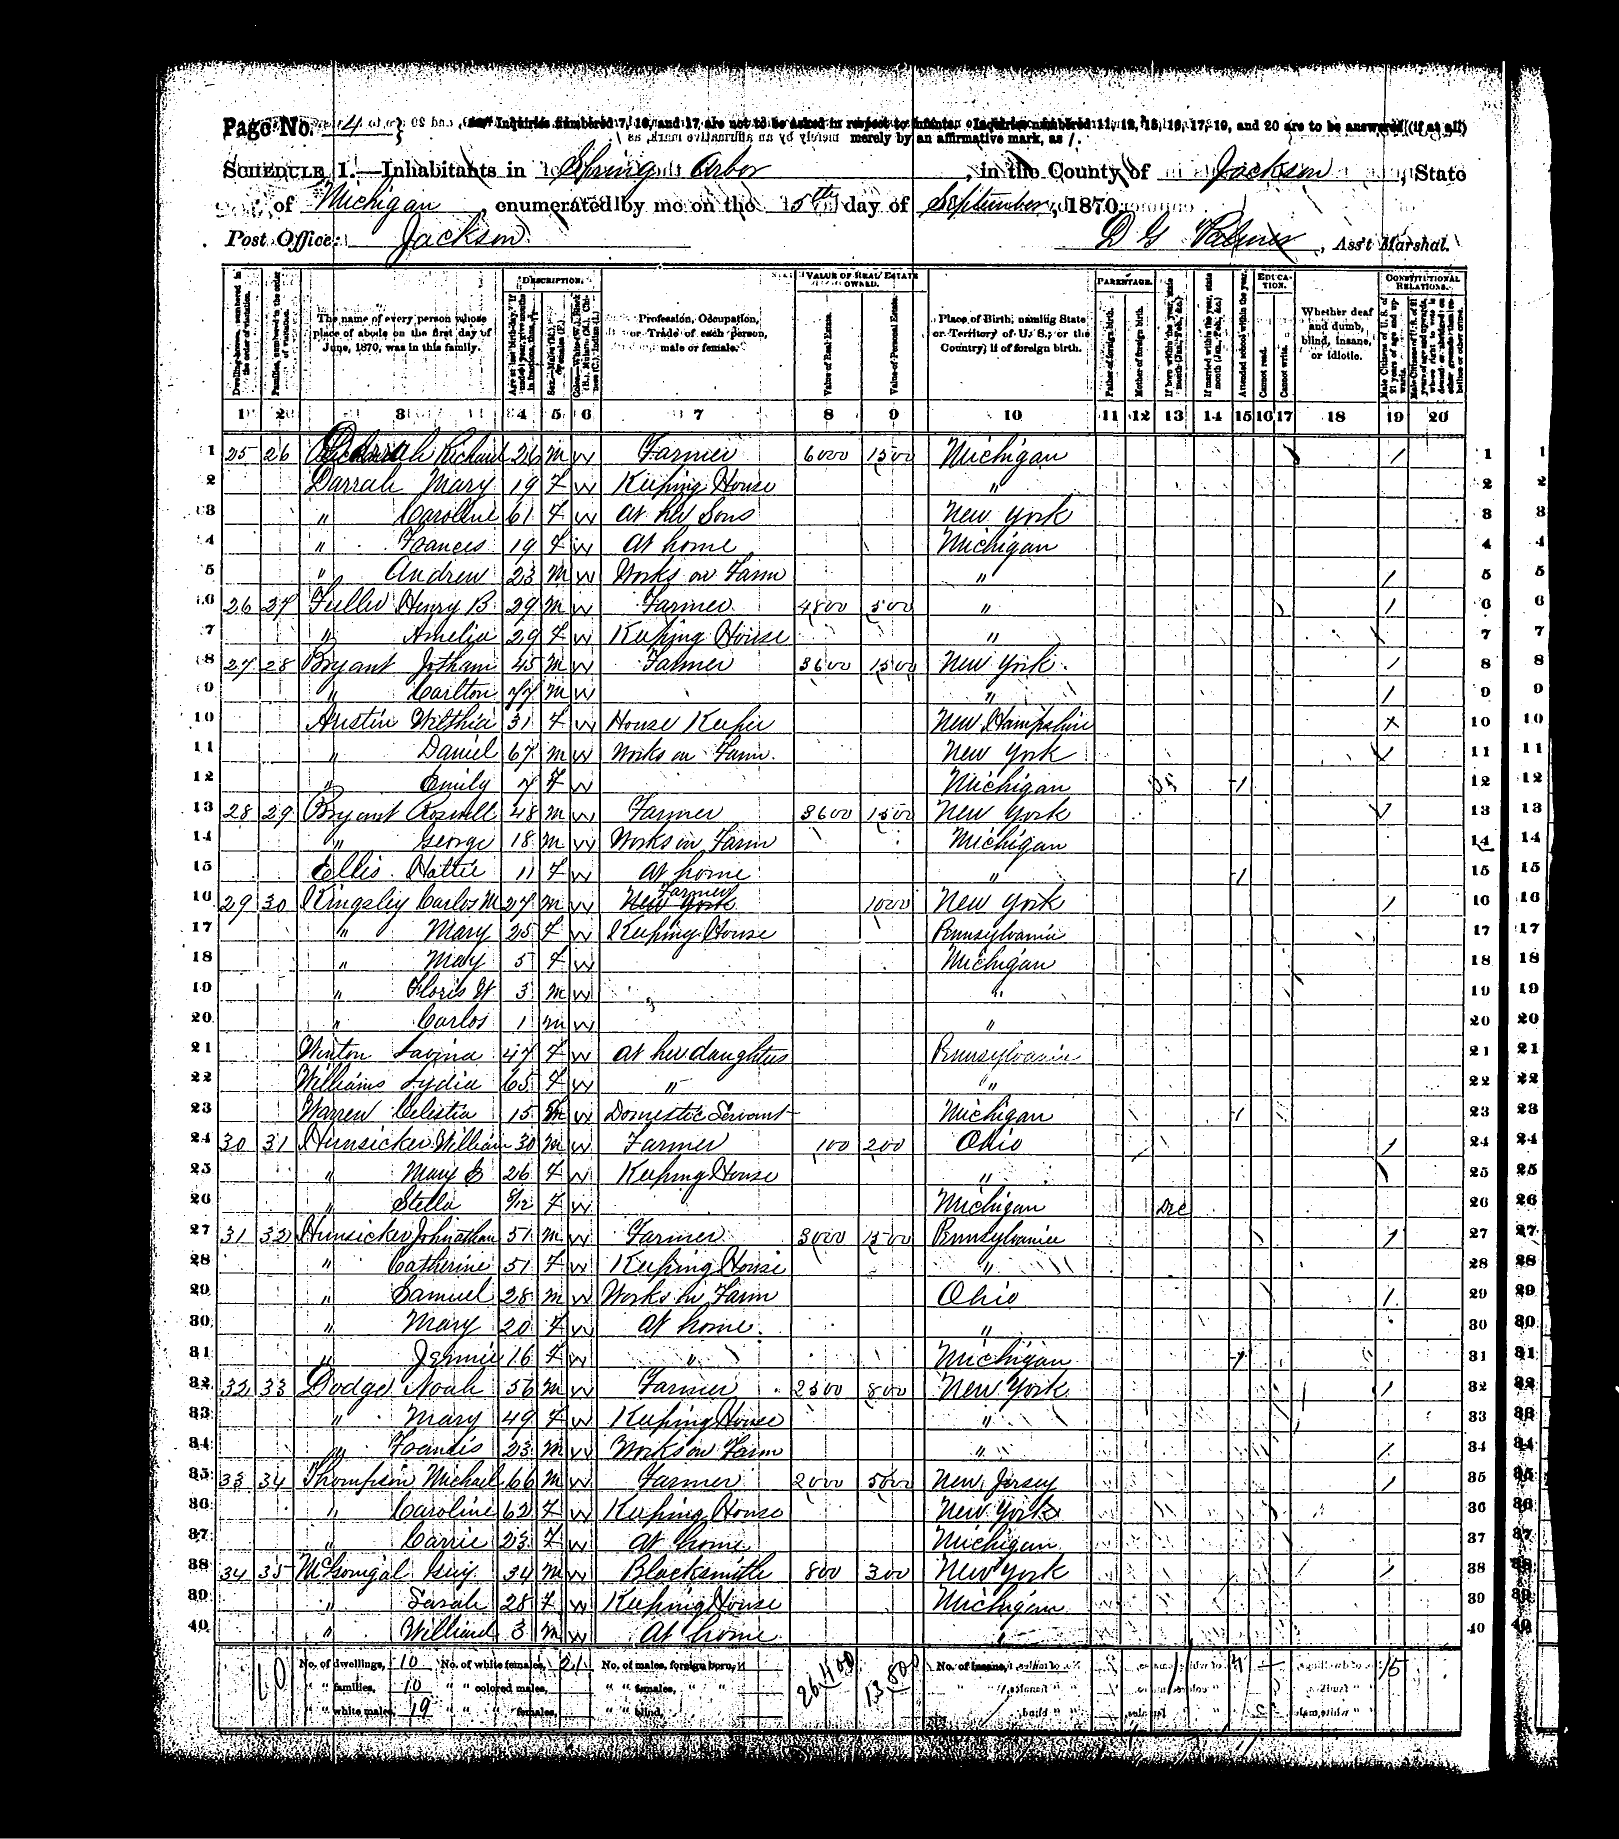 Page No. 4
Inquiries numbered 7, 16, and 17 are not to be asked in respect to infants. Inquiries numbered 11, 12, 15, 16, 17, 19, and 20 are to be answered (if at all) merely by an affirmative mark, as /.
SCHEDULE 1.—Inhabitants in Spring Arbor, in the County of Jackson, State
of Michigan, enumerated by me on the 5th day of September, 1870.
Post Office: Jackson D G Palmer, Ass't Marshal.
DESCRIPTION. VALUE OF REAL ESTATE OWNED. PARENTAGE. EDUCATION. CONSTITUTIONAL RELATIONS.
Dwelling-houses, numbered in the order of visitation. Families, numbered in the order of visitation. The name of every person whose place of abode on the first day of June, 1870, was in this family. Profession, Occupation, or Trade of each person, male or female. Value of Real Estate. Value of Personal Estate. Place of Birth, naming State or Territory of U. S.; or the Country, if of foreign birth. Father of foreign birth. Mother of foreign birth. Attended school within the year. Cannot read. Cannot write. Whether deaf and dumb, blind, insane, or idiotic.
1 2 3 4 5 6 7 8 9 10 11 12 13 14 15 16 17 18 19 20
1 25 26 Darrah Richard 26 M W Farmer 6000 1500 Michigan / 1
2 Darrah Mary 19 F W Keeping House " 2
3 " Caroline 61 F W At her Sons New York 3
4 " Frances 19 F W At home Michigan 4
5 " Andrew 23 M W Works on Farm " / 5
6 26 27 Fuller Henry B. 29 M W Farmer 4800 500 " / 6
7 " Amelia 29 F W Keeping House " 7
8 27 28 Bryant Jotham 45 M W Farmer 3600 1500 New York / 8
9 " Carlton 77 M W " / 9
10 Austin 31 F W House Keeper New Hampshire 10
11 " Daniel 67 M W Works on Farm New York / 11
12 " Emily 7 F W Michigan / 12
13 28 29 Bryant Roswell 48 M W Farmer 3600 1500 New York / 13
14 " George 18 M W Works on Farm Michigan 14
15 Ellis Hattie 11 F W At home " / 15
16 29 30 Kingsley Carlos M 27 M W Farmer 1000 New York / 16
17 " Mary 25 F W Keeping House Pennsylvania 17
18 " May 5 F W Michigan 18
19 " Floris W 3 M W " 19
20 " Carlos 1 M W " 20
21 Winton Lavina 47 F W At her daughters Pennsylvania 21
22 Williams Lydia 65 F W " " 22
23 Warren Celestia 15 F W Domestic Servant Michigan / 23
24 30 31 Hunsicker William 30 M W Farmer 100 200 Ohio / 24
25 " Mary E 26 F W Keeping House " 25
26 " Stella 8/12 F W Michigan Dec 26
27 31 32 Hunsicker Johnathan 51 M W Farmer 3000 1500 Pennsylvania / 27
28 " Catherine 51 F W Keeping House " 28
29 " Samuel 28 M W Works on Farm Ohio / 29
30 " Mary 20 F W At home " 30
31 " Jennie 16 F W " Michigan / 31
32 32 33 Dodge Noah 56 M W Farmer 2500 800 New York / 32
33 " Mary 49 F W Keeping House " 33
34 " Francis 23 M W Works on Farm " / 34
35 33 34 Thompson Michael 66 M W Farmer 2000 5000 New Jersey / 35
36 " Caroline 62 F W Keeping House New York 36
37 " Carrie 23 F W At home Michigan 37
38 34 35 McGonigal 34 M W Blacksmith 800 300 New York / 38
39 " Sarah 28 F W Keeping House Michigan 39
40 " Williard 3 M W At home " 40
No. of dwellings, 10 No. of white females, 21 No. of males, foreign born, 26,400 13,800 No. of insane, 4 15
" " families, 10 " " colored males, " " females, " "
" " white males, 19 " " " females, " " blind,